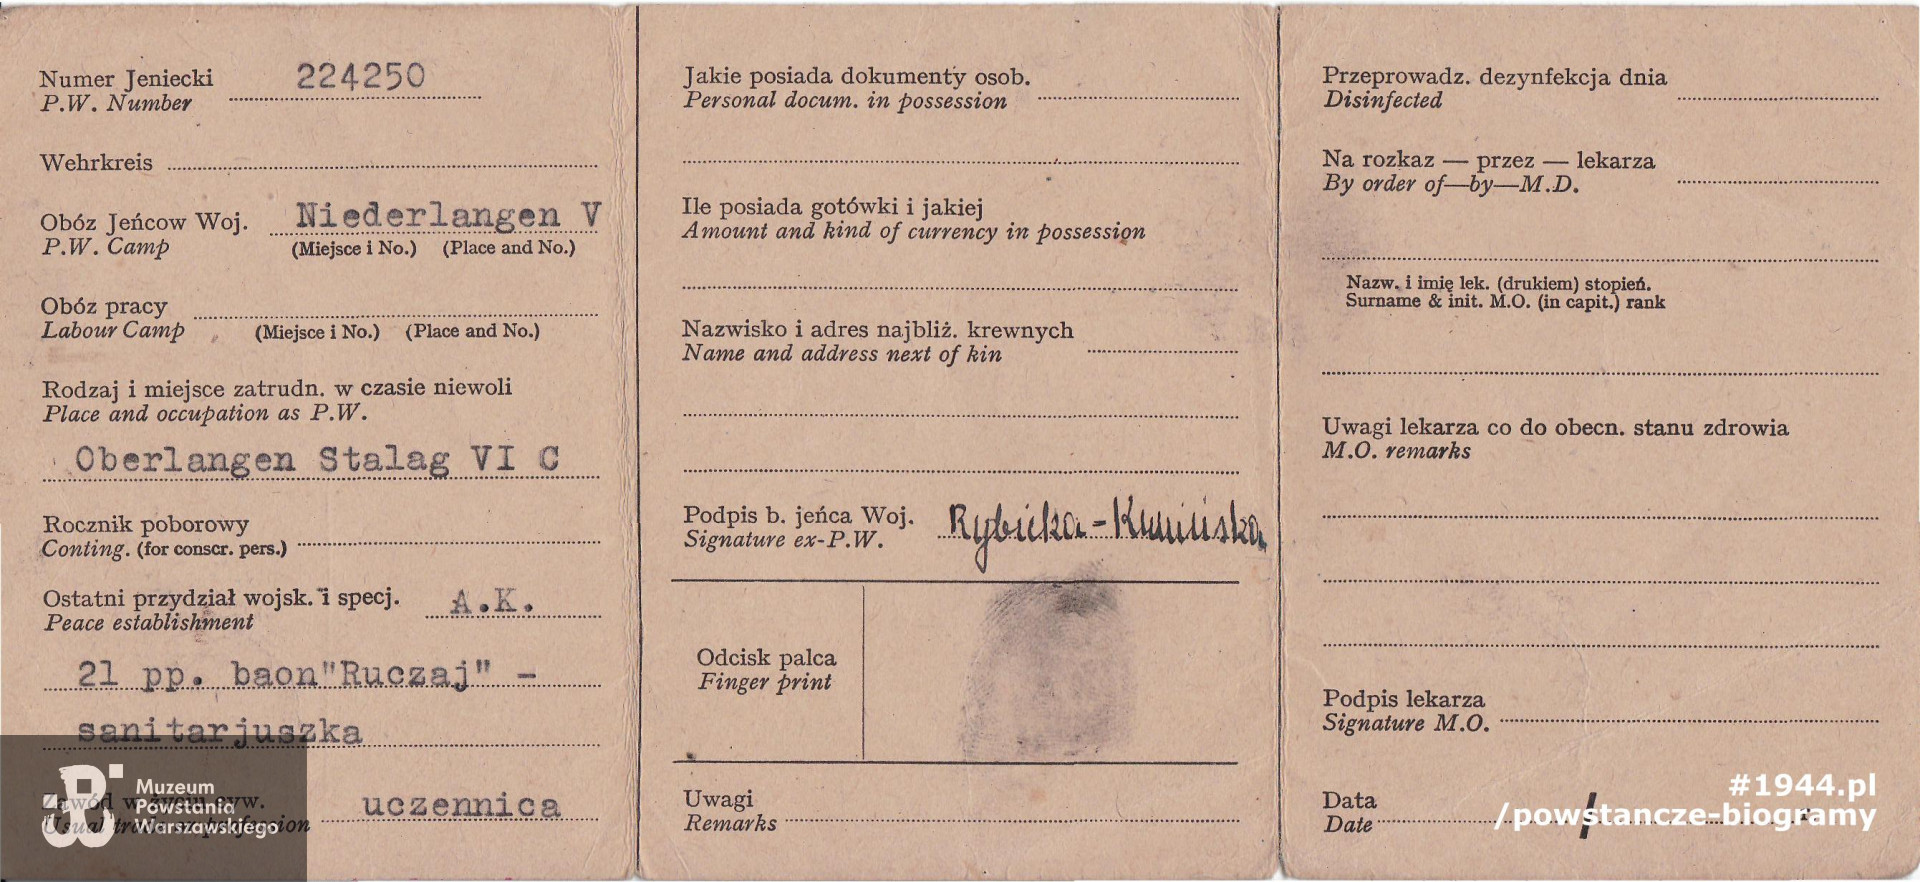 Numer Jeniecki 224250
P.W. Number
Wehrkreis
Obóz Jeńcow Woj. Niederlangen V
P.W. Camp (Miejsce i No.) (Place and No.)
Obóz pracy
Labour Camp (Miejsce i No.) (Place and No.)
Rodzaj i miejsce zatrudn. w czasie niewoli
Place and occupation as P.W.
Oberlangen Stalag VI C
Rocznik poborowy
Conting. (for conscr. pers.)
Ostatni przydział wojsk. i specj. A.K.
Peace establishment
21 pp. baon "Ruczaj" -
sanitarjuszka
Zawód w życiu cyw. uczennica
Usual trade or profession
Muzeum
Powstania
Warszawskiego
Jakie posiada dokumenty osob.
Personal docum. in possession
Ile posiada gotówki i jakiej
Amount and kind of currency in possession
Nazwisko i adres najbliż. krewnych
Name and address next of kin
Podpis b. jeńca Woj. Rybicka-Kumińska
Signature ex-P.W.
Odcisk palca
Finger print
Uwagi
Remarks
Przeprowadz. dezynfekcja dnia
Disinfected
Na rozkaz — przez — lekarza
By order of—by—M.D.
Nazw. i imię lek. (drukiem) stopień.
Surname & init. M.O. (in capit.) rank
Uwagi lekarza co do obecn. stanu zdrowia
M.O. remarks
Podpis lekarza
Signature M.O.
Data
Date
#1944.pl
/powstancze-biogramy